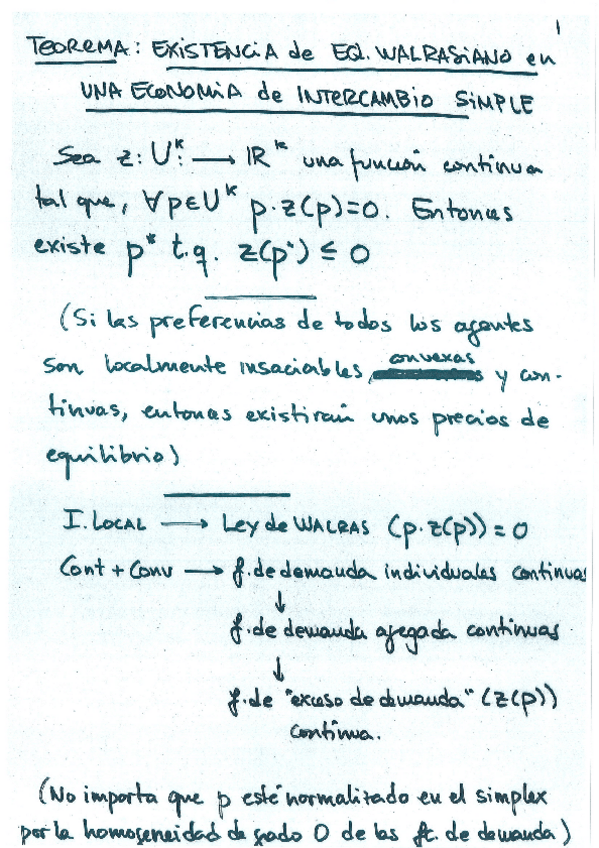 1
TEOREMA: EXISTENCIA de EQ. WALRASIANO en
UNA ECONOMIA de INTERCAMBIO SIMPLE
Sea z: U^k: → ℝ^k una función continua
tal que, ∀p∈U^k p·z(p)=0. Entonces
existe p* t.q. z(p*) ≤ 0
(Si las preferencias de todos los agentes
son localmente insaciables, convexas y con-
tinuas, entonces existirán unos precios de
equilibrio)
I. LOCAL → Ley de WALRAS (p·z(p)) = 0
Cont + Conv → f. de demanda individuales continuas
↓
f. de demanda agregada continuas
↓
f. de "exceso de demanda" (z(p))
continua.
(No importa que p esté normalizado en el simplex
por la homogeneidad de grado 0 de las ft. de demanda)